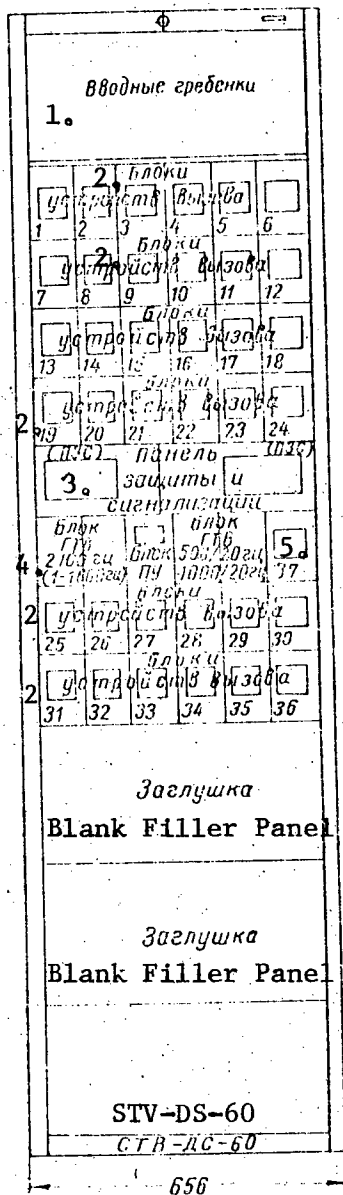 Вводные гребенки
1.
2 Блоки
устройств вызова
1 2 3 4 5 6
Блоки
2 устройств вызова
7 8 9 10 11 12
Блоки
устройств вызова
13 14 15 16 17 18
Блоки
устройств вызова
2 19 20 21 22 23 24
(ПЗС) Панель (ПЗС)
3. защиты и
сигнализации
Блок Блок
ГТВ ГТВ 5.
2100 гц Блок 500/20гц
4 ПУ 1000/20гц 37
Блоки
2 устройств вызова
25 26 27 28 29 30
Блоки
2 устройств вызова
31 32 33 34 35 36
Заглушка
Blank Filler Panel
Заглушка
Blank Filler Panel
STV-DS-60
СТВ-ДС-60
656